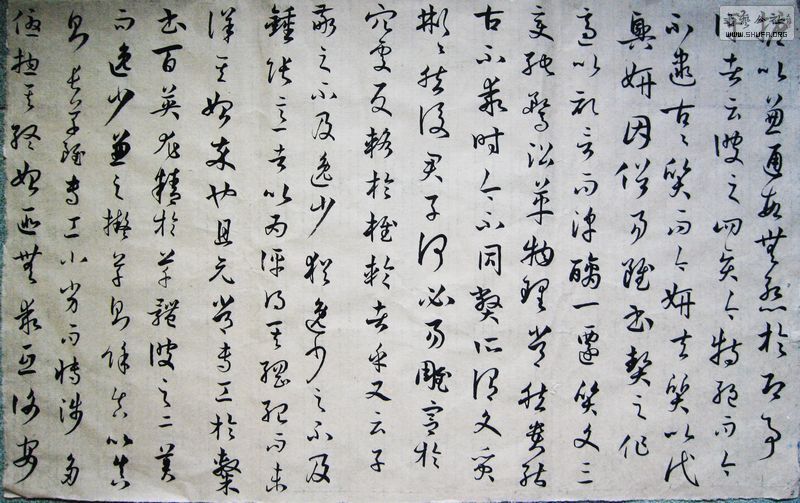 摭以兼通故無慚於即事
評者云彼之四賢今特絕而今
不逮古古質而今妍夫質以代
興妍因俗易雖書契之作
適以記言而淳醨一遷質文三
變馳騖沿革物理常然貴能
古不乖時今不同弊所謂文質
彬彬然後君子何必易雕宮於
穴處反輅於椎輪者乎又云子
敬之不及逸少猶逸少之不及
鍾張意者以為評得其綱紀而未
詳其始卒也且元常專工於隸
書百英尤精於草體彼之二美
而逸少兼之擬草則餘真比真
則長草雖專工小劣而博涉多
優總其終始匪無乖互謝安
WWW.SHUFA.ORG